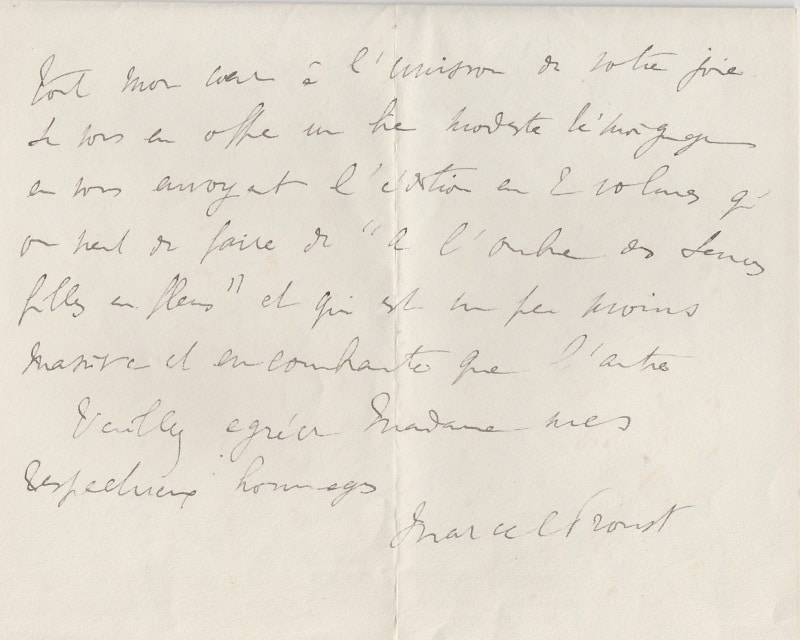 tout mon cœur à l'unisson de votre joie.
Je vous en offre un très modeste témoignage
en vous envoyant l'édition en 2 volumes qu'
on vient de faire de "A l'ombre des Jeunes
filles en fleurs" et qui est un peu moins
massive et encombrante que l'autre
Veuillez agréer Madame mes
respectueux hommages
Marcel Proust